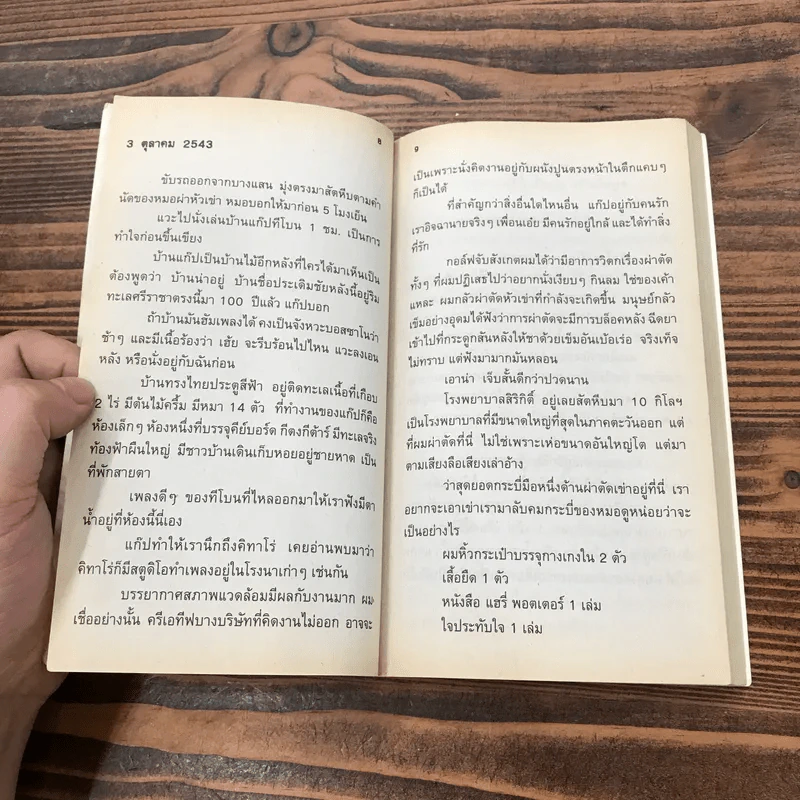 3 ตุลาคม 2543
8
ขับรถออกจากบางแสน มุ่งตรงมาสัตหีบตามคำ
นัดของหมอผ่าหัวเข่า หมอบอกให้มาก่อน 5 โมงเย็น
แวะไปนั่งเล่นบ้านแก๊ปทีโบน 1 ชม. เป็นการ
ทำใจก่อนขึ้นเขียง
บ้านแก๊ปเป็นบ้านไม้อีกหลังที่ใครได้มาเห็นเป็น
ต้องพูดว่า บ้านน่าอยู่ บ้านชื่อประเดิมชัยหลังนี้อยู่ริม
ทะเลศรีราชาตรงนี้มา 100 ปีแล้ว แก๊ปบอก
ถ้าบ้านมันฮัมเพลงได้ คงเป็นจังหวะบอสซาโนว่า
ช้าๆ และมีเนื้อร้องว่า เฮ้ย จะรีบร้อนไปไหน แวะลงเอน
หลัง หรือนั่งอยู่กับฉันก่อน
บ้านทรงไทยประตูสีฟ้า อยู่ติดทะเลเนื้อที่เกือบ
2 ไร่ มีต้นไม้ครึ้ม มีหมา 14 ตัว ที่ทำงานของแก๊ปก็คือ
ห้องเล็กๆ ห้องหนึ่งที่บรรจุคีย์บอร์ด กีตงกีต้าร์ มีทะเลจริง
ท้องฟ้าผืนใหญ่ มีชาวบ้านเดินเก็บหอยอยู่ชายหาด เป็น
ที่พักสายตา
เพลงดีๆ ของทีโบนที่ไหลออกมาให้เราฟังมีตา
น้ำอยู่ที่ห้องนี้นี่เอง
แก๊ปทำให้เรานึกถึงคิทาโร่ เคยอ่านพบมาว่า
คิทาโร่ก็มีสตูดิโอทำเพลงอยู่ในโรงนาเก่าๆ เช่นกัน
บรรยากาศสภาพแวดล้อมมีผลกับงานมาก ผม
เชื่ออย่างนั้น ครีเอทีฟบางบริษัทที่คิดงานไม่ออก อาจจะ
9
เป็นเพราะนั่งคิดงานอยู่กับผนังปูนตรงหน้าในตึกแคบๆ
ก็เป็นได้
ที่สำคัญกว่าสิ่งอื่นใดไหนอื่น แก๊ปอยู่กับคนรัก
เราอิจฉานายจริงๆ เพื่อนเอ๋ย มีคนรักอยู่ใกล้ และได้ทำสิ่ง
ที่รัก
กอล์ฟจับสังเกตผมได้ว่ามีอาการวิตกเรื่องผ่าตัด
ทั้งๆ ที่ผมปฏิเสธไปว่าอยากนั่งเงียบๆ กินลม ใช่ของเค้า
แหละ ผมกลัวผ่าตัดหัวเข่าที่กำลังจะเกิดขึ้น มนุษย์กลัว
เข็มอย่างอุดมได้ฟังว่าการผ่าตัดจะมีการบล็อคหลัง ฉีดยา
เข้าไปที่กระดูกสันหลังให้ชาด้วยเข็มอันเบ้อเร่อ จริงเท็จ
ไม่ทราบ แต่ฟังมามากมันหลอน
เอาน่า เจ็บสั้นดีกว่าปวดนาน
โรงพยาบาลสิริกิติ์ อยู่เลยสัตหีบมา 10 กิโลฯ
เป็นโรงพยาบาลที่มีขนาดใหญ่ที่สุดในภาคตะวันออก แต่
ที่ผมผ่าตัดที่นี่ ไม่ใช่เพราะเห่อขนาดอันใหญ่โต แต่มา
ตามเสียงลือเสียงเล่าอ้าง
ว่าสุดยอดกระบี่มือหนึ่งด้านผ่าตัดเข่าอยู่ที่นี่ เรา
อยากจะเอาเข่าเรามาลับคมกระบี่ของหมอดูหน่อยว่าจะ
เป็นอย่างไร
ผมหิ้วกระเป๋าบรรจุกางเกงใน 2 ตัว
เสื้อยืด 1 ตัว
หนังสือ แฮรี่ พอตเตอร์ 1 เล่ม
ใจประทับใจ 1 เล่ม